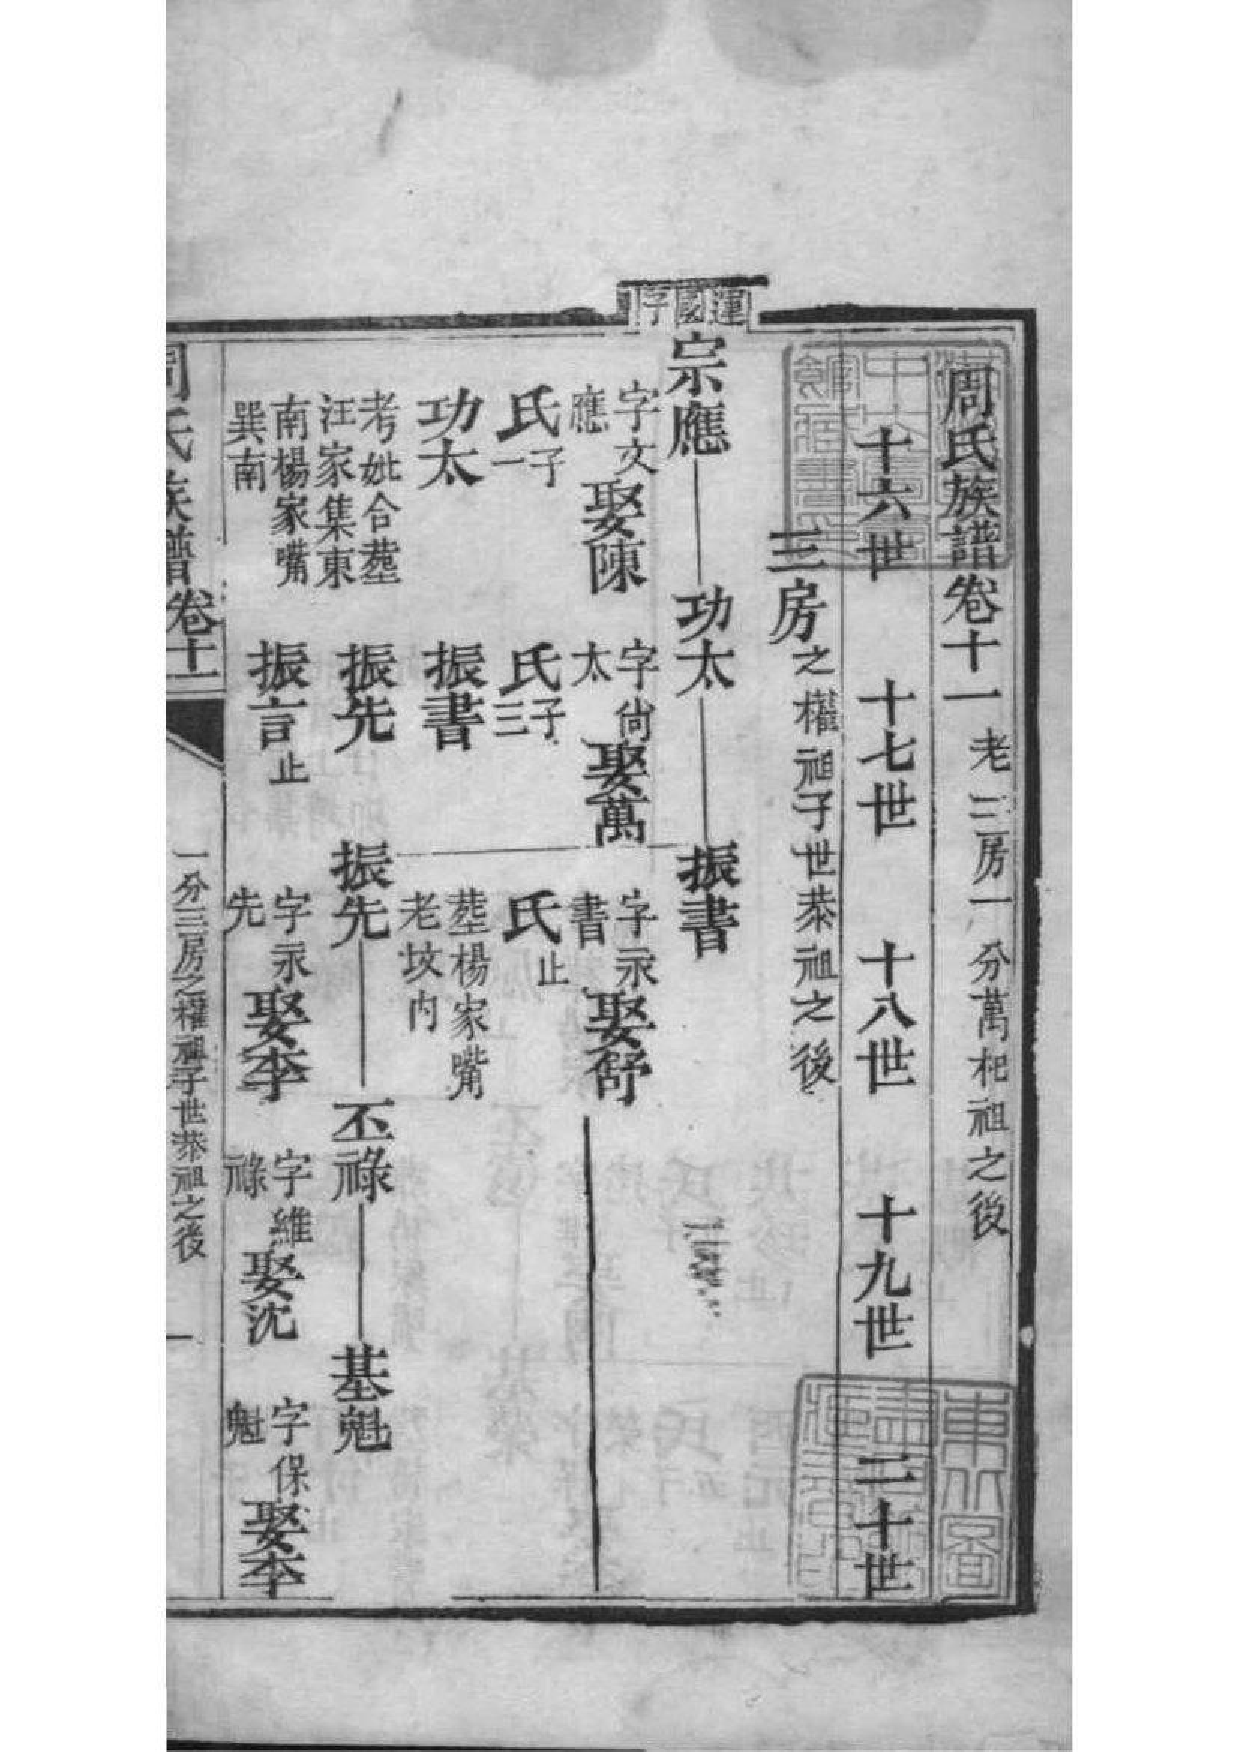 周氏族譜卷十一 老三房一分萬杞祖之後
十六世 十七世 十八世 十九世 二十世
三房之權祖子世恭祖之後
運國字
宗應 功太 振書
字文應娶陳 字尚太娶萬 字永書娶舒
氏子一 氏子三 氏止
功太 振書 塟楊家嘴老坟内
考妣合塟汪家集東南楊家嘴巽南
振先 振先 丕祿 基魁
振言止 字永先娶李 字維祿娶沈 字保魁娶李
周氏族譜 卷十一 一分三房之權祖子世恭祖之後 一